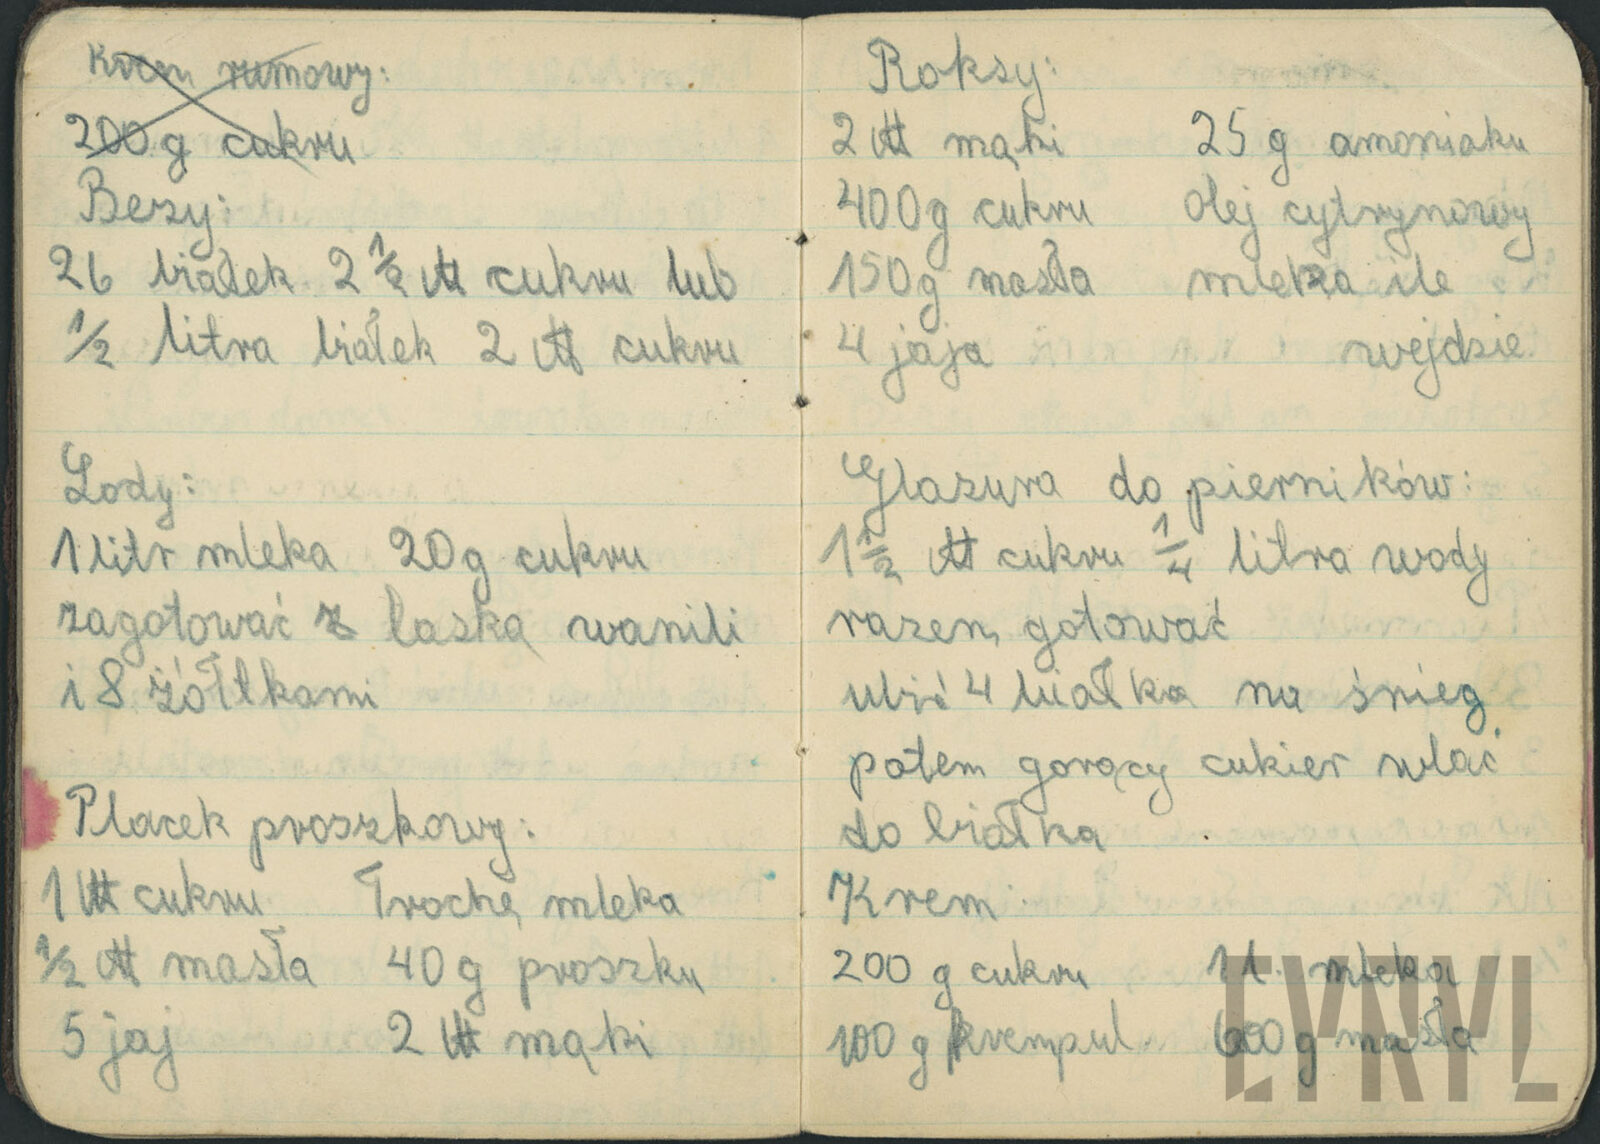 Krem rumowy:
200 g cukru
Bezy:
26 białek 2 1/2 ℔ cukru lub
1/2 litra białek 2 ℔ cukru
Lody:
1 litr mleka 20 g cukru
zagotować z laską wanili
i 8 żółtkami
Placek proszkowy:
1 ℔ cukru trochę mleka
1/2 ℔ masła 40 g proszku
5 jaj 2 ℔ mąki
Roksy:
2 ℔ mąki 25 g amoniaku
400 g cukru olej cytrynowy
150 g masła mleka ile
4 jaja wejdzie
Glazura do pierników:
1 1/2 ℔ cukru 1/4 litra wody
razem gotować
ubić 4 białka na śnieg
potem gorący cukier wlać
do białka
Krem
200 g cukru 1 l. mleka
100 g krempul. 600 g masła